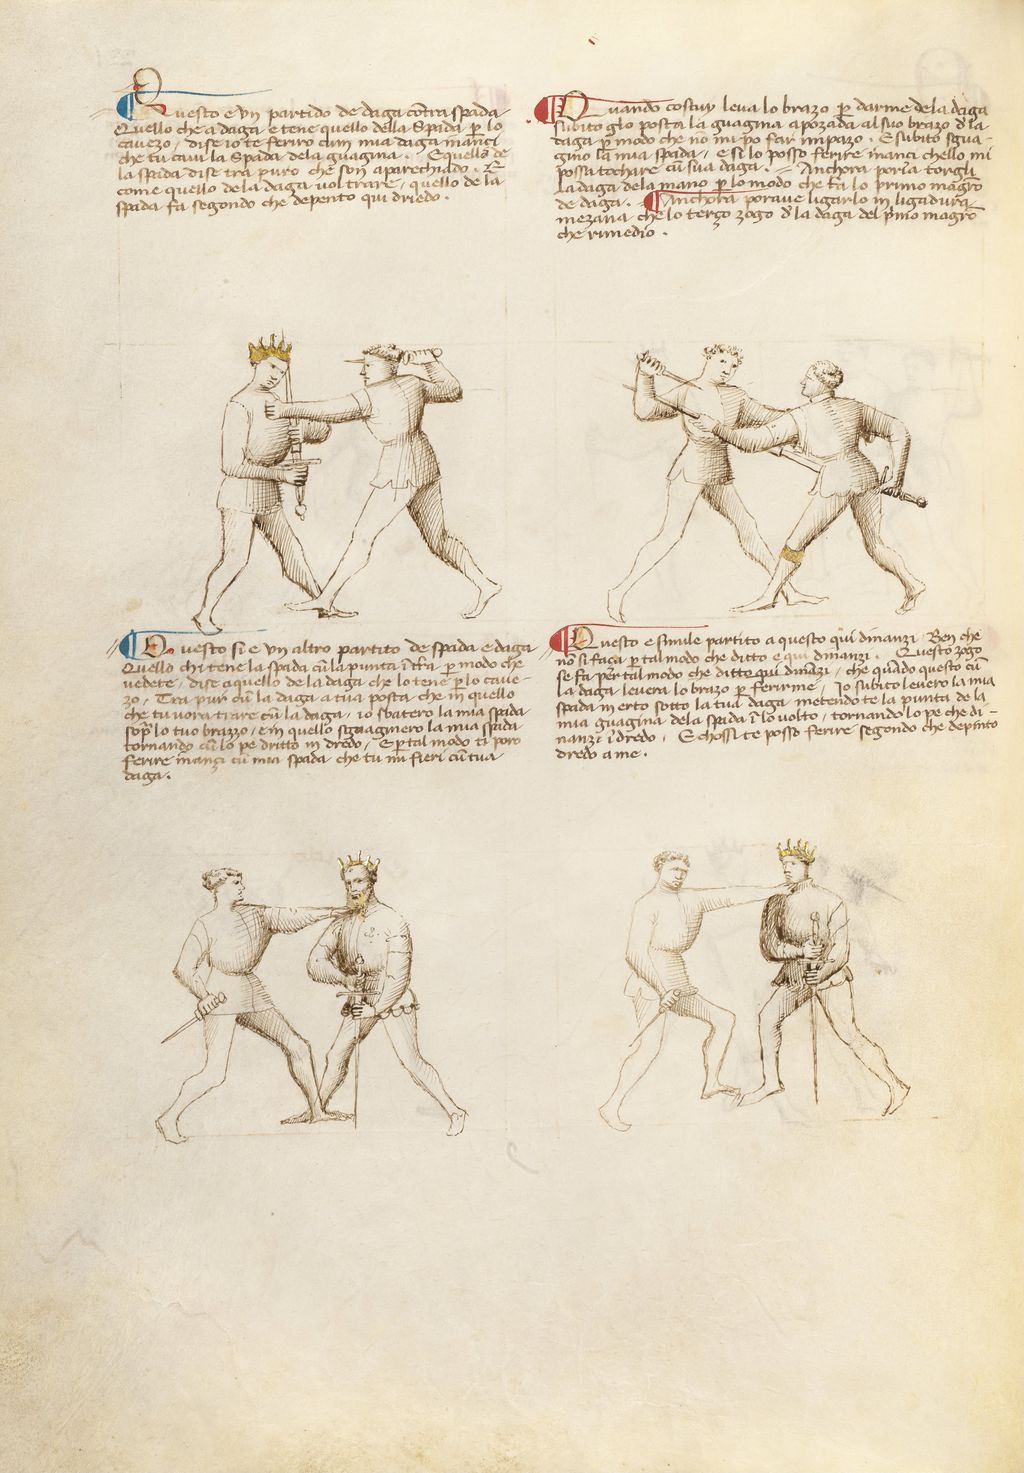 Questo e un partido de daga cōtra spada
Quello che a daga e tene quello della Spada p lo
cavezo, dise io te feriro cum mia daga inanci
che tu cavi la Spada dela guagina. E quello de
la spada dise tra puro che son aparechiado. E
come quello de la daga vol trare, quello de la
spada fa segondo che depento qui driedo.
Quando costuy leva lo brazo p darme dela daga
subito glo posta la guagina apozada al suo brazo d'la
daga p modo che nō mi po far impazo. E subito sgua-
gino la mia spada, e si lo posso ferire inanci chello mi
possa tochare cū sua daga. Anchora poria torgli
la daga dela mano p lo modo che fa lo primo magrō
de daga. Anchora porave ligarlo in ligadura
mezana che lo terzo zogo d'la daga del p'mo magrō
che rimedio.
Questo si e un altro partito de spada e daga
Quello chi tene la spada cū la punta ī t'ra p modo che
vedete, dise a quello de la daga che lo tene p lo cave-
zo, Tra pur cū la daga a tua posta che in quello
che tu vora trare cū la daga, io sbatero la mia spada
sop'lo tuo brazzo, e in quello sguaginero la mia spada
tornando cū lo pe dritto in dredo, E p tal modo ti poro
ferire inanzi cū mia spada che tu mi fieri cū tua
daga.
Questo e simile partito a questo qui dinanzi, Ben che
nō si faça p tal modo che ditto e qui dinanzi. Questo zogo
se fa per tal modo che ditto qui dināzi, che quādo questo cū
la daga levera lo brazo p ferirme, Io subito levero la mia
spada in erto sotto la tua daga metendo te la punta de la
mia guagina dela spada ī lo volto, tornando lo pe che di-
nanzi ī dredo, E chossi te posso ferire segondo che depinto
dredo a me.